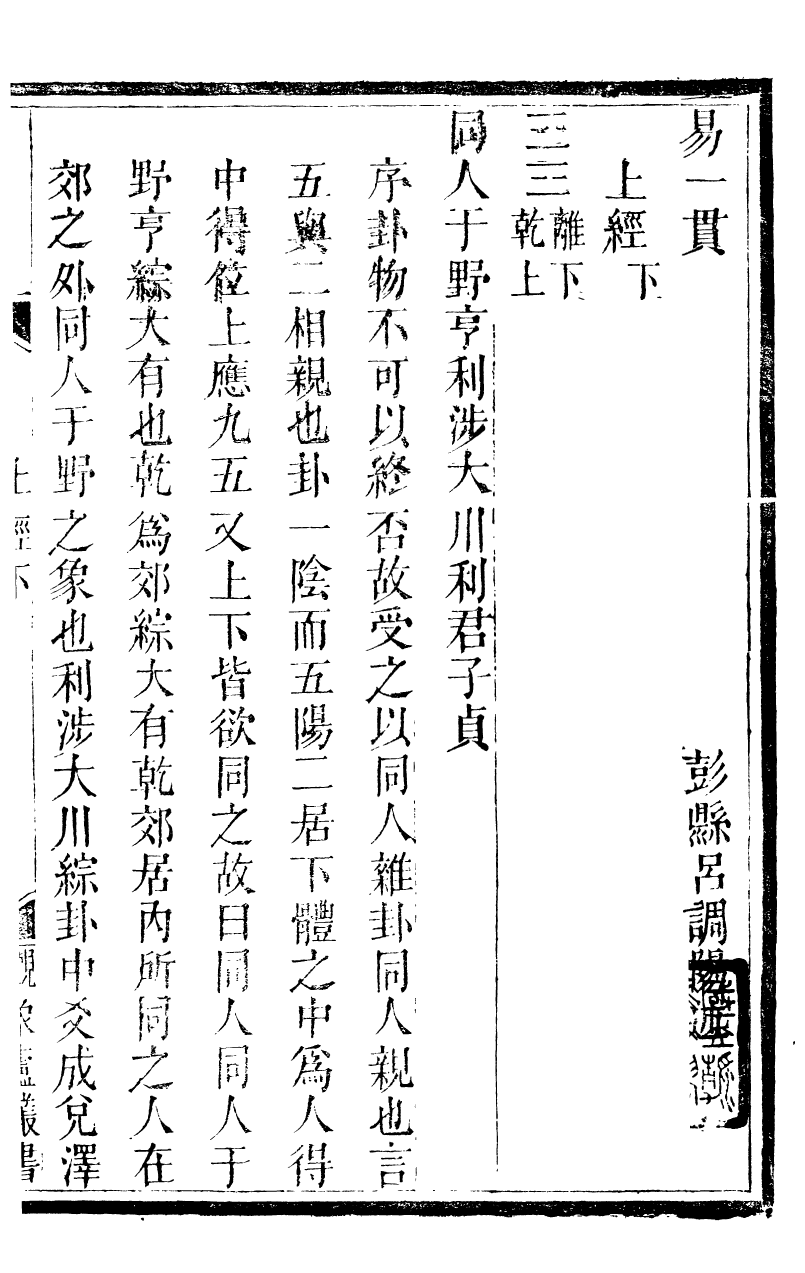 易一貫
彭縣呂調陽述
上經下
離下
乾上
同人于野亨利涉大川利君子貞
序卦物不可以終否故受之以同人雜卦同人親也言
五與二相親也卦一陰而五陽二居下體之中爲人得
中得位上應九五又上下皆欲同之故曰同人同人于
野亨綜大有也乾爲郊綜大有乾郊居內所同之人在
郊之外同人于野之象也利涉大川綜卦中爻成兌澤
上經下
觀象廬叢書